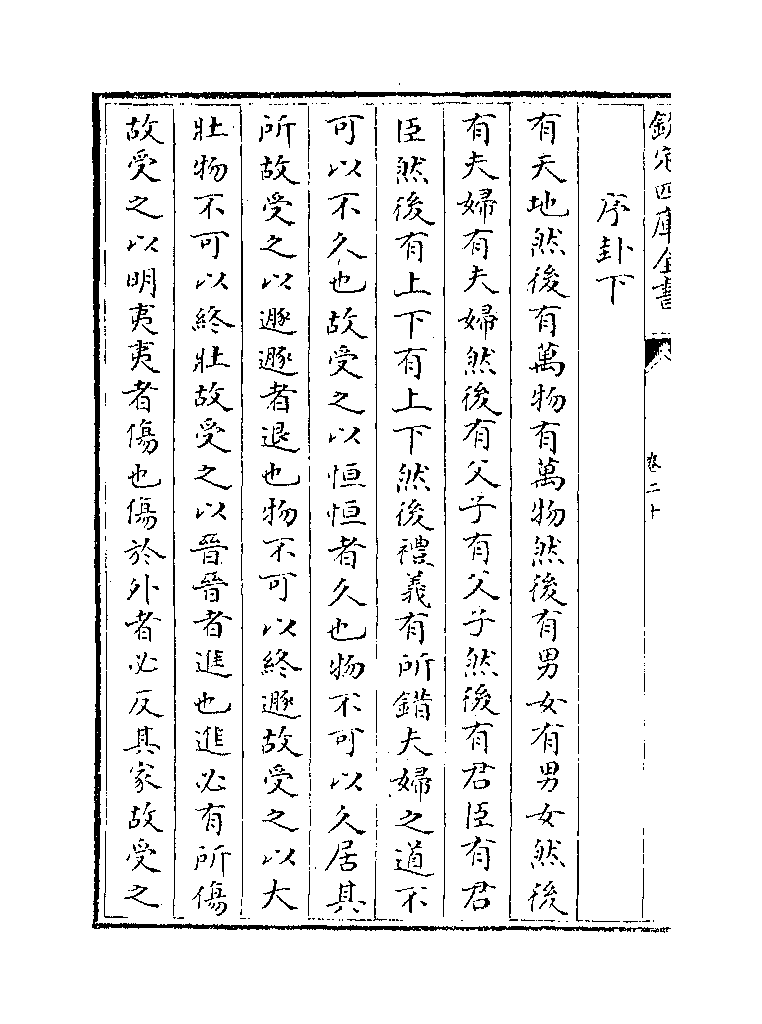 欽定四庫全書
卷二十
序卦下
有天地然後有萬物有萬物然後有男女有男女然後
有夫婦有夫婦然後有父子有父子然後有君臣有君
臣然後有上下有上下然後禮義有所錯夫婦之道不
可以不久也故受之以恒恒者久也物不可以久居其
所故受之以遯遯者退也物不可以終遯故受之以大
壯物不可以終壯故受之以晉晉者進也進必有所傷
故受之以明夷夷者傷也傷於外者必反其家故受之